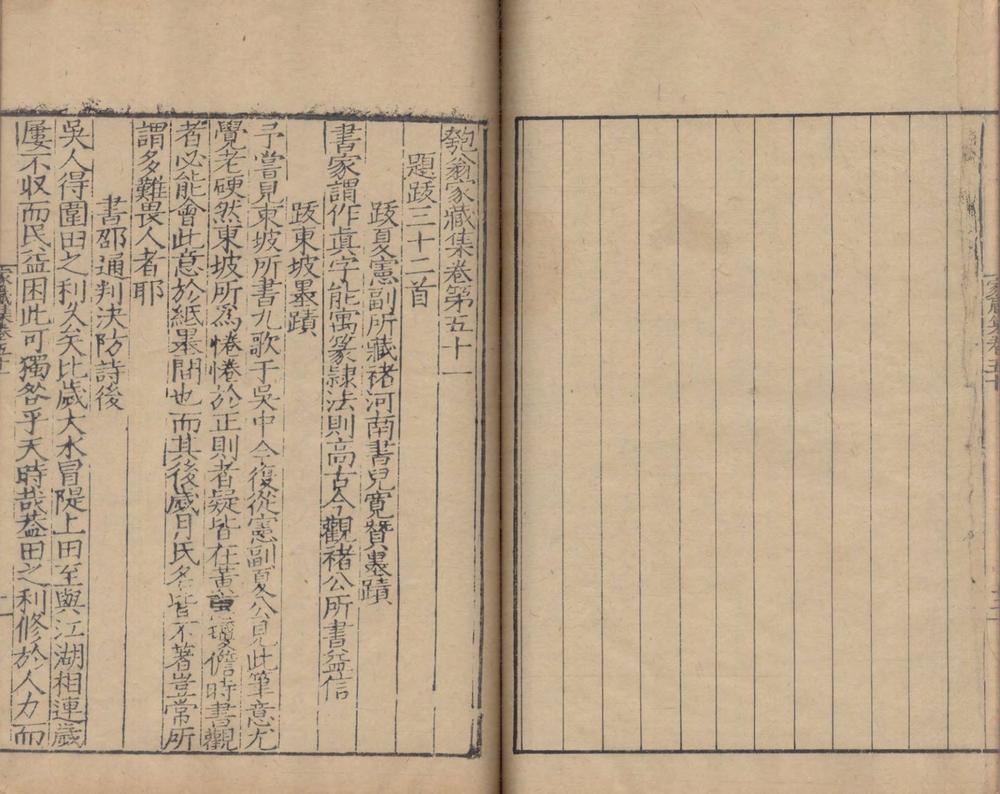 匏翁家藏集卷第五十一
題跋三十二首
跋夏憲副所藏褚河南書兒寛贊墨蹟
書家謂作眞字能寓篆隷法則高古今觀褚公所書益信
跋東坡墨蹟
予嘗見東坡所書九歌于吳中今復從憲副夏公見此筆意尤
覺老硬然東坡所爲惓惓於正則者疑皆在黄州瓊儋時書觀
者必能會此意於紙墨間也而其後歲月氏名皆不著豈常所
謂多難畏人者耶
書邵通判決防詩後
吳人得圍田之利久矣比歲大水冒隄上田至與江湖相連歲
屢不収而民益困此可獨咎乎天時哉葢田之利修於人力而